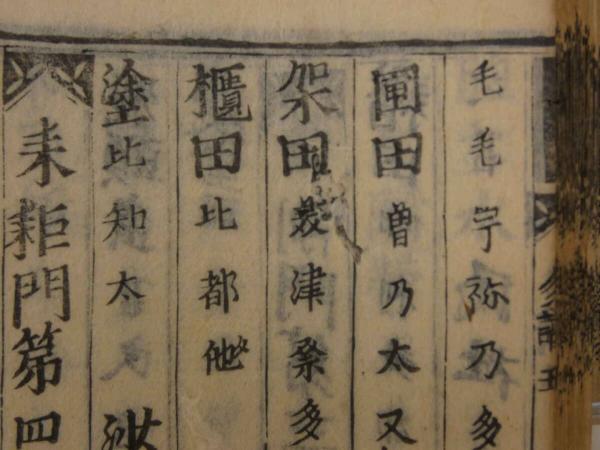 毛毛宇祢乃多
圃田曽乃太又
架田 津祭多
櫃田比都他
塗比知太
耒耟門第四